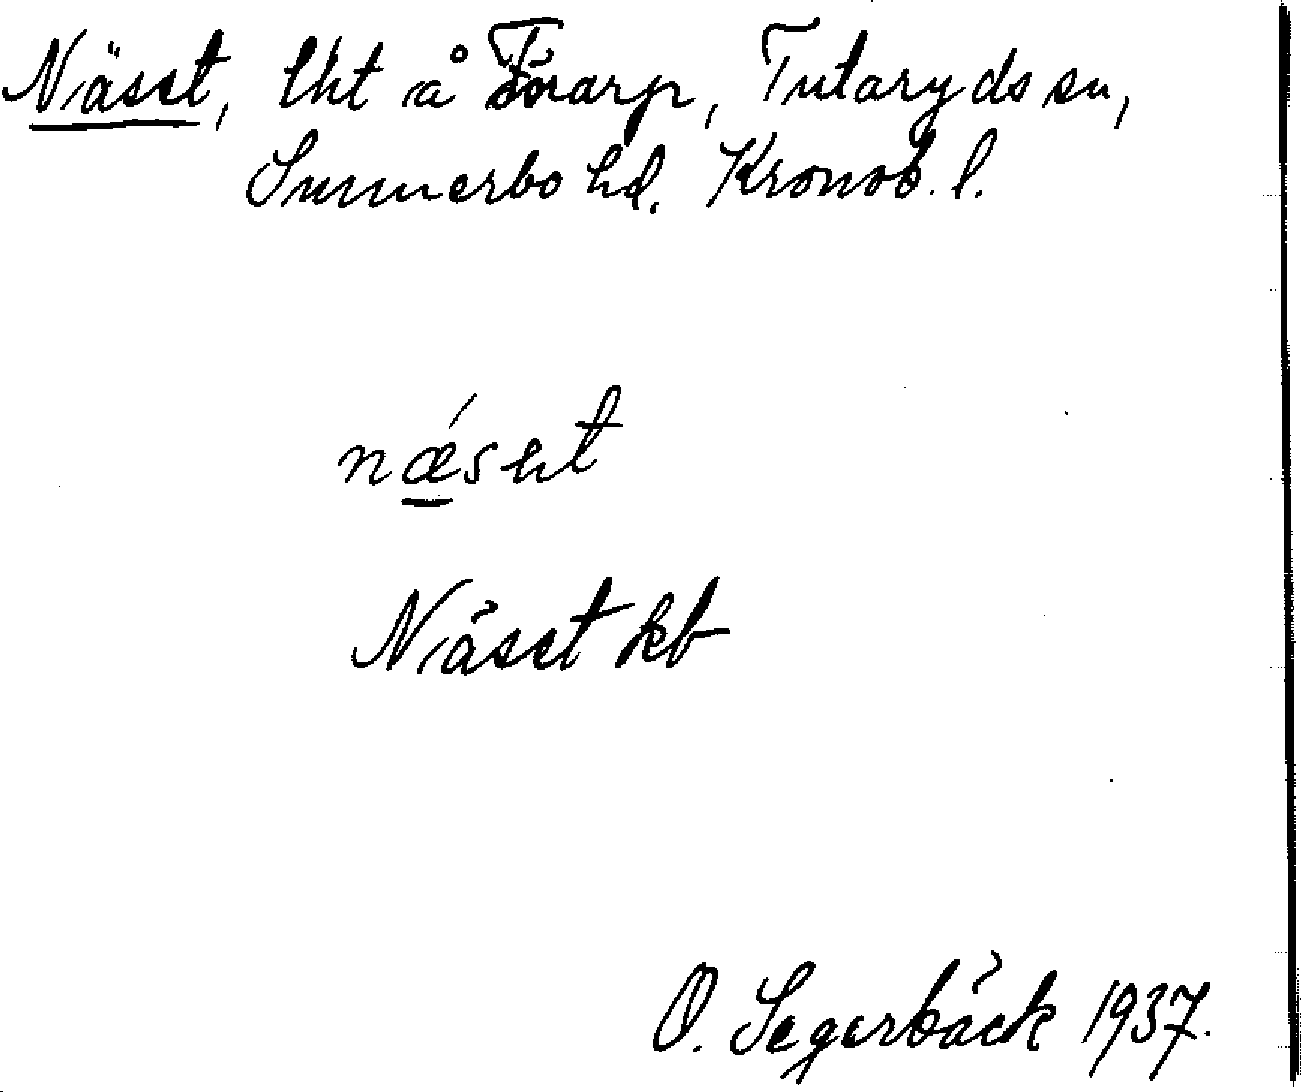 Näset, lht å Forarp, Tutaryds sn,
Sunnerbo hd. Kronob. l.
nǽsət
Näset kb
O. Segerbäck 1937.